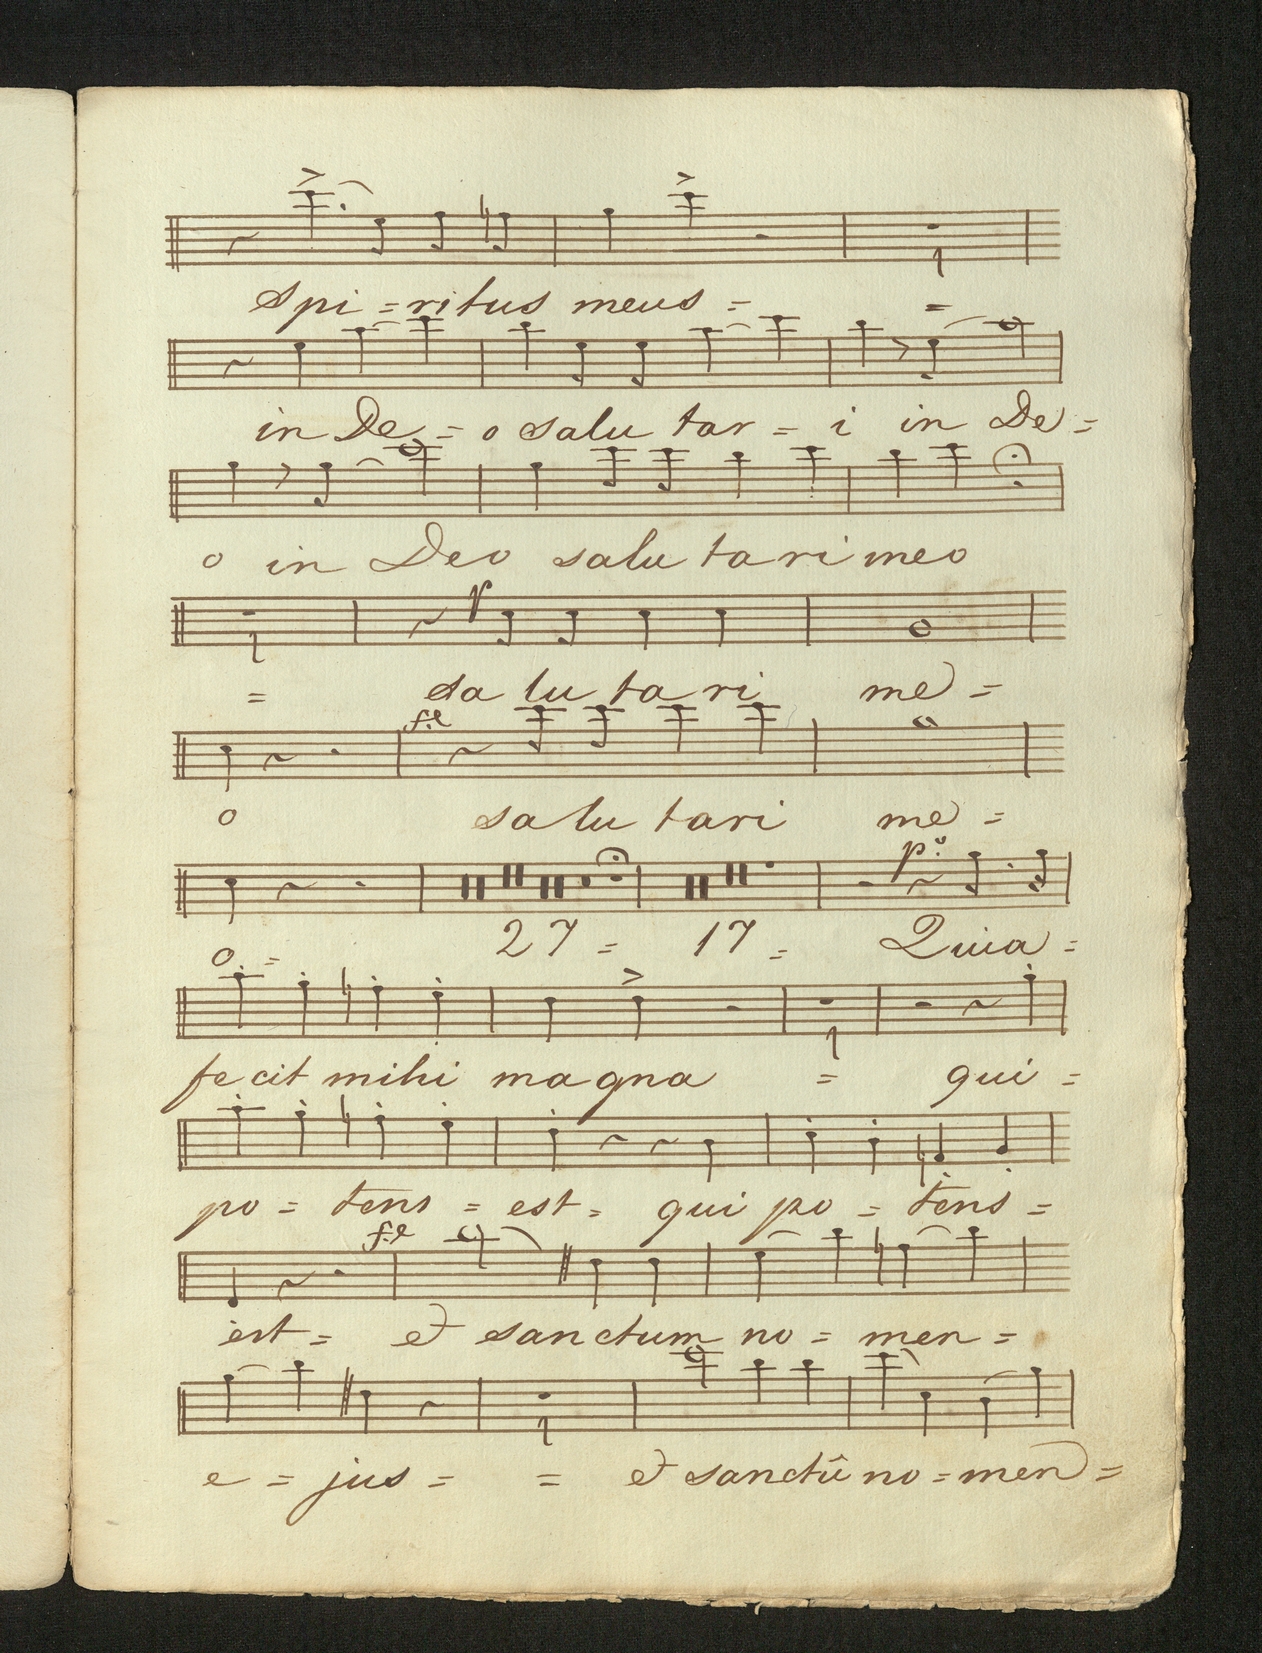 Spi = ritus meus = =
in De = o salu tar = i in De =
o in Deo salu tari meo
p
= sa lu ta ri me =
f.e
o salu tari me =
p.o
o. = 27 = 17 = Quia =
fecit mihi magna = qui =
po = tens = est = qui po = tens =
f.e
est = et sanctum no = men =
e = jus = = et sanctū no = men =